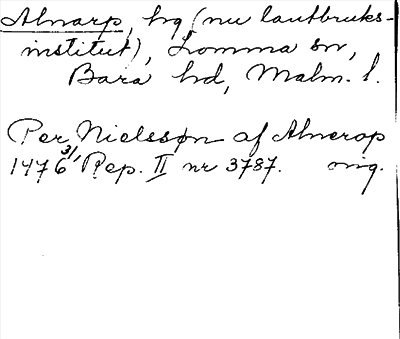 Alnarp, hg (nu lantbruks-
institut), Lomma sn,
Bara hd, Malm. l.
Per Nielssøn af Alnerop
1476 3/1 Rep. II nr 3787. orig.